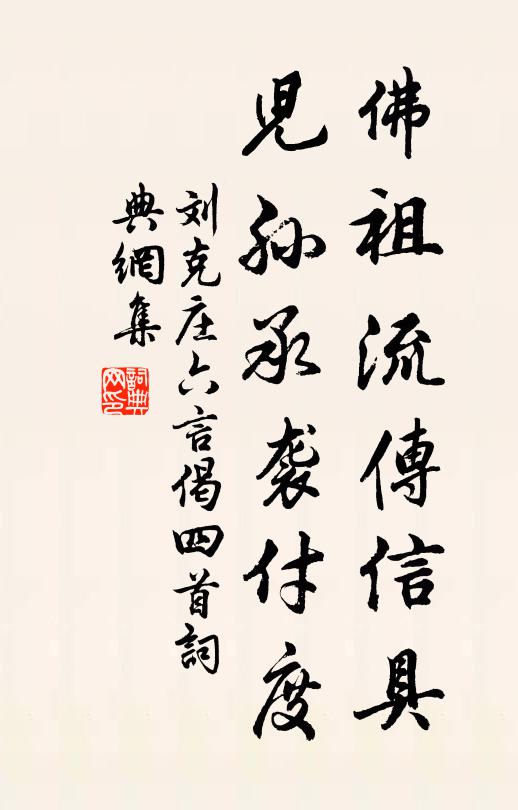 佛祖流傳信具
兒孫承袭付度
刘克庄六言偈四首詞
典網集
詞典網印